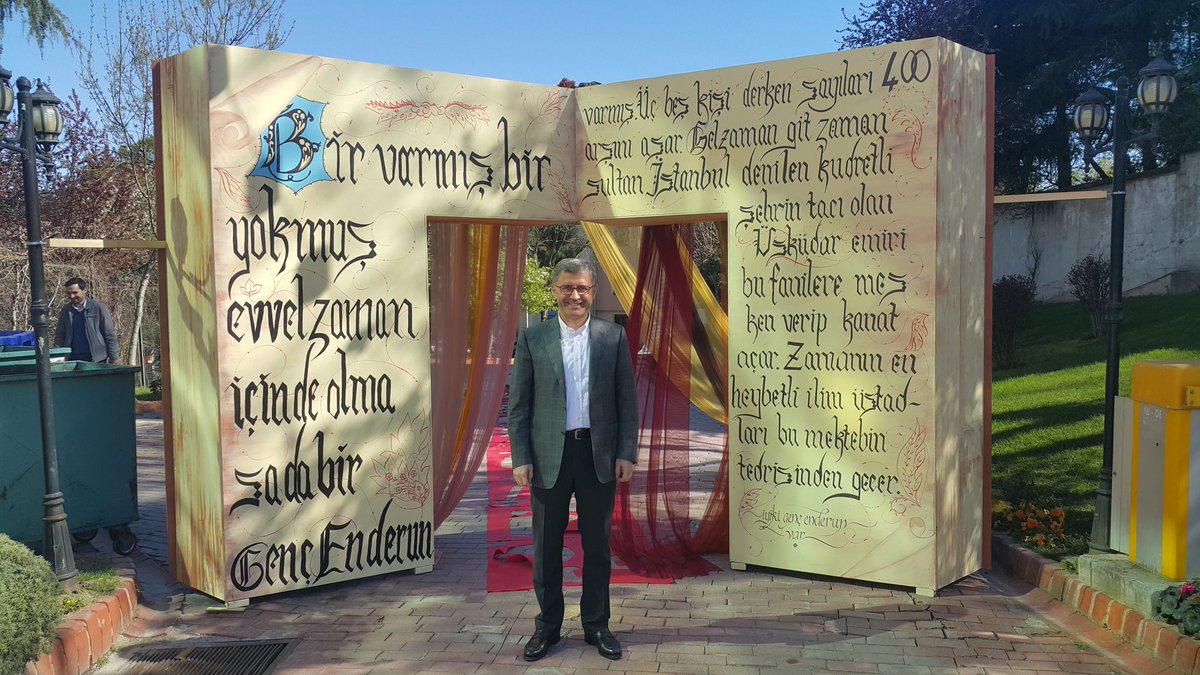 Bir varmış bir
yokmuş
evvel zaman
içinde olma
sa da bir
Genç Enderun
varmış. Üç beş kişi derken sayıları 400
arşını aşar. Gel zaman git zaman
sultan, İstanbul denilen kudretli
şehrin tacı olan
Üsküdar emiri
bu fanilere mes
ken verip kanat
açar. Zamanın en
heybetli ilim üstad-
ları bu mektebin
tedrisinden geçer.
iyiki genç enderun
var